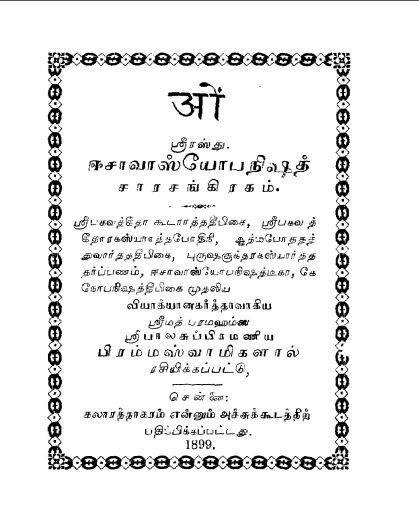 ओं
ஸ்ரீரஸ்து.
ஈசாவாஸ்யோபநிஷத்
சாரசங்கிரகம்.
ஸ்ரீபகவத்கீதா கூடார்த்ததீபிகை, ஸ்ரீபகவத்
கீதாரகஸ்யார்த்தபோதிநி, ஆத்மபோததத்
துவார்த்ததீபிகை, புருஷஸூக்தரகஸ்யார்த்த
தர்ப்பணம், ஈசாவாஸ்யோபநிஷத்டீகா, கே
நோபநிஷத்தீபிகை முதலிய
வியாக்யானகர்த்தாவாகிய
ஸ்ரீமத் பரமஹம்ஸ
ஸ்ரீபாலசுப்பிரமணிய
பிரம்மஸ்வாமிகளால்
ரசியிக்கப்பட்டு,
சென்னை:
கலாரத்நாகரம் என்னும் அச்சுக்கூடத்திற்
பதிப்பிக்கப்பட்டது.
1899.